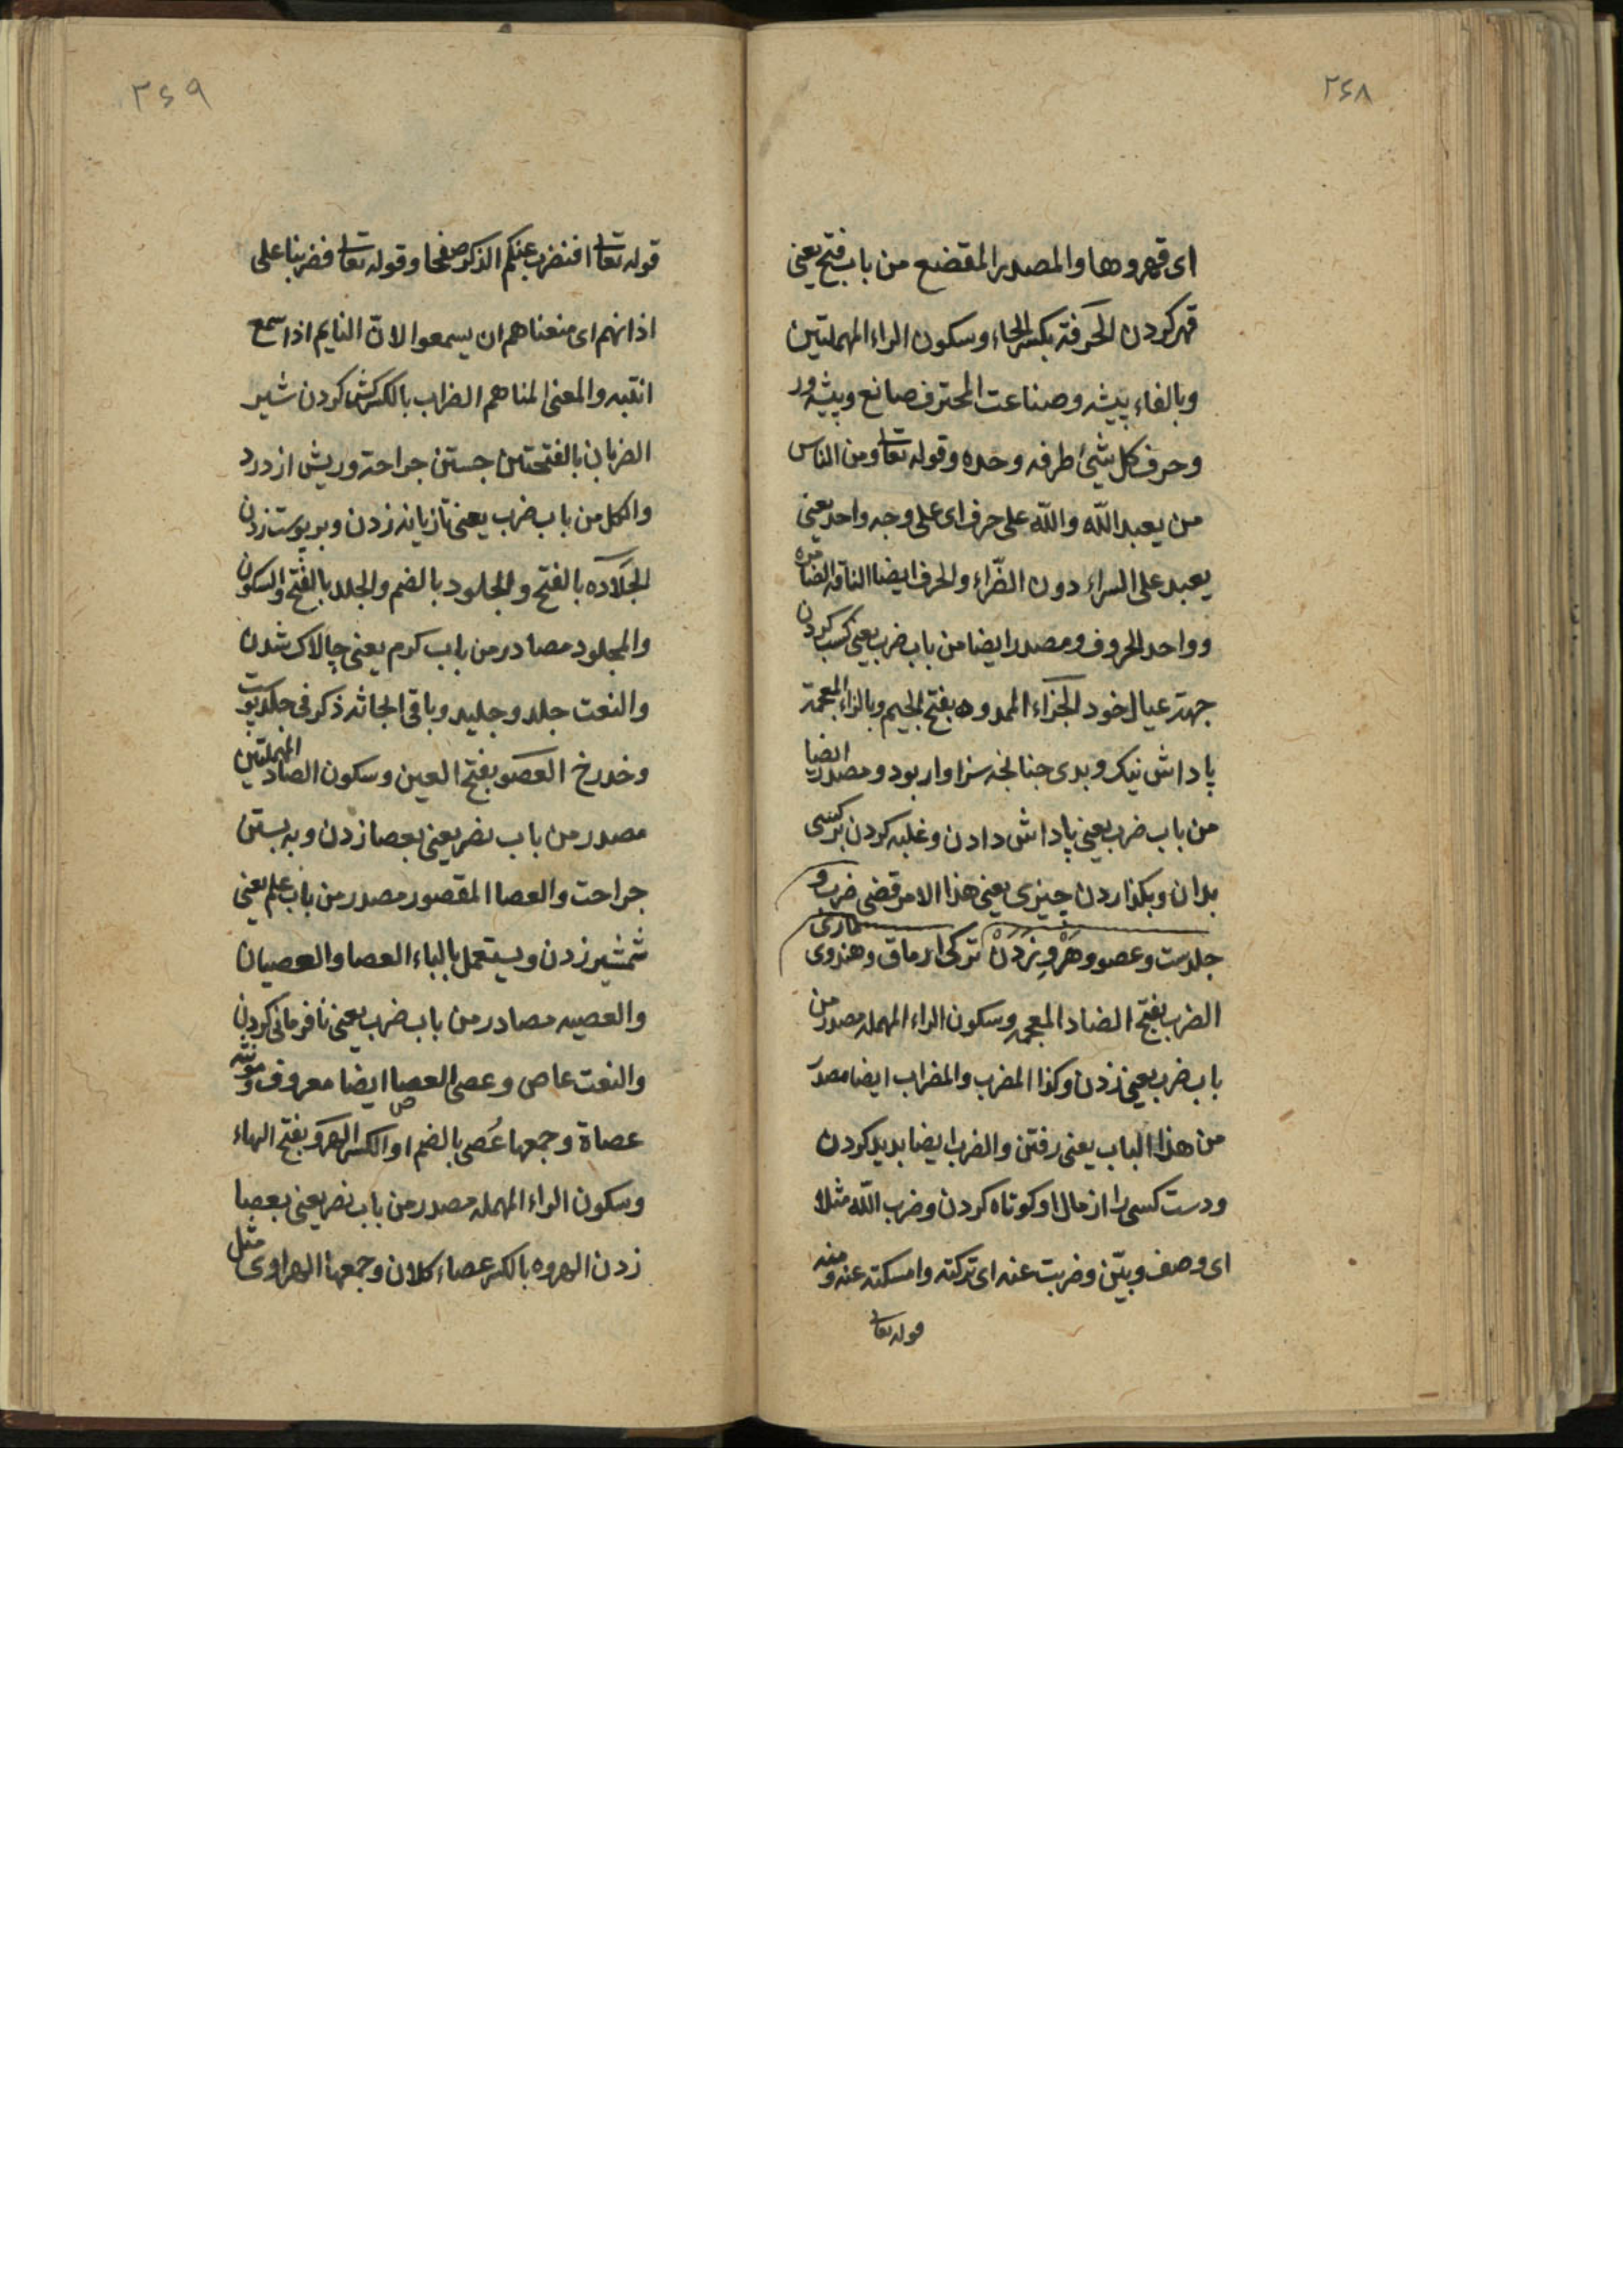 ۲۶۸
ای قهروها والمصدر المقضع من باب فتح یعنی
قهر کردن الحرفة بکسر الحاء وسکون الراء المهملتین
وبالفاء پیشه وصناعت المحترف صانع وپیشه ور
وحرف کل شیٔ طرفه وحده وقوله تعا ومن الناس
من یعبد الله والله علی حرف ای علی وجه واحد یعنی
یعبد علی السراء دون الضّراء والحرف ایضا الناقه الضامره
وواحد الحروف ومصدر ایضا من باب ضرب یعنی کسب کردن
جهة عیال خود الجزاء الممدوده بفتح الجیم وبالزاء المعجمة
پاداش نیک وبدی چنانچه سزاوار بود ومصدر ایضا
من باب ضرب یعنی پاداش دادن وغلبه کردن بر کسی
بدان وبگذاردن چیزی یعنی هذا الامر قضی ضرب و
جلدست وعصو وهَرْوِ زَدَنْ ترکی ارماق وهندوی ماری
الضرب بفتح الضاد المعجمه وسکون الراء المهمله مصدر من
باب ضرب یعنی زدن وکذا المضرب والمضراب ایضا مصدر
من هذا الباب یعنی رفتن والضرب ایضا بدید کردن
ودست کسی را از مال او کوتاه کردن وضرب الله مثلا
ای وصف وبیّن وضربت عنه ای ترکته وامسکته عنه ومنه
قوله تعا
۲۶۹
قوله تعا افنضرب عنکم الذکر صفحا وقوله تعا فضربنا علی
اذانهم ای منعناهم ان یسمعوا لانّ النایم اذا سمع
انتبه والمعنی انمناهم الضراب بالکسر کشی کردن شتر
الضربان بالفتحتین جستن جراحة وریش از درد
والکل من باب ضرب یعنی تازیانه زدن وبر پوست زدن
الجَلاده بالفتح والجلود بالضم والجلد بالفتح والسکون
والمجلود مصادر من باب کرم یعنی چالاک شدن
والنعت جلد وجلید وباقی ابحاثه ذکر فی جلد پوست
وخدرخ العصو بفتح العین وسکون الصاد المهملتین
مصدر من باب نصر یعنی بعصا زدن وبه بستن
جراحت والعصا المقصور مصدر من باب علم یعنی
شمشیر زدن ویستعمل بالباء العصا والعصیان
والعصیه مصادر من باب ضرب یعنی نافرمانی کردن
والنعت عاص وعصی العصا ایضا معروف ومونثه
عصاة وجمعها عُصی بالضم او الکسر الهرو بفتح الهاء
وسکون الراء المهمله مصدر من باب نصر یعنی بعصا
زدن الهروه بالکسر عصاء کلان وجمعها الهراوی مثل